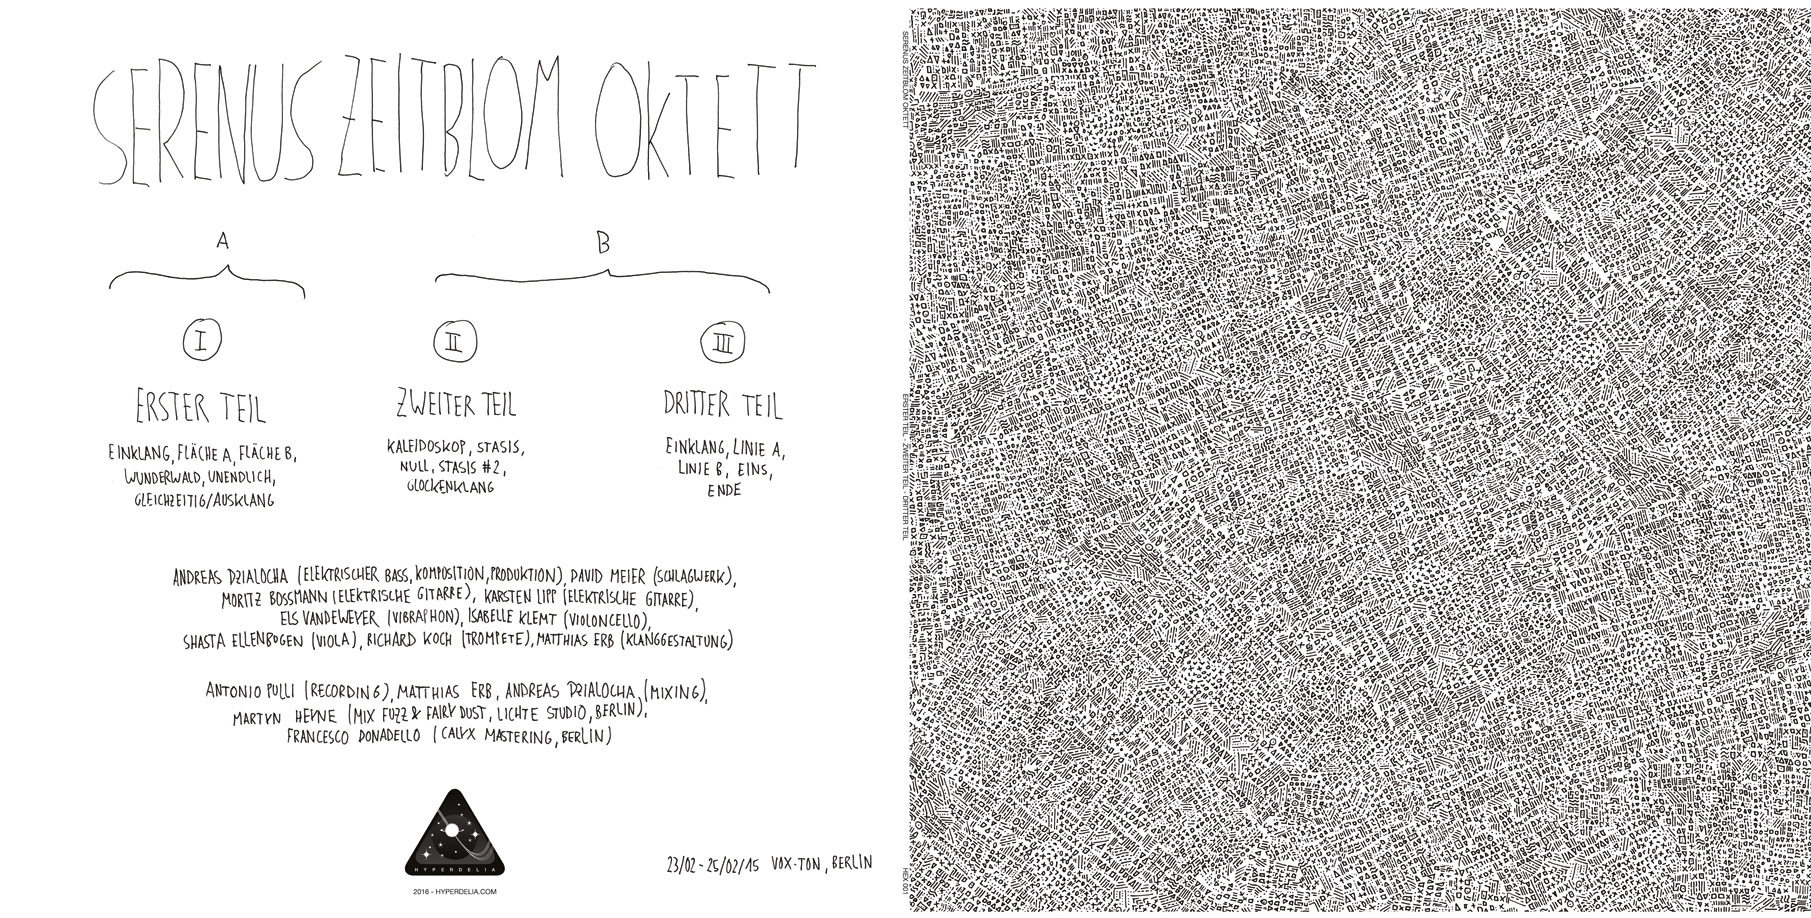 SERENUS ZEITBLOM OKTETT
A
B
I
II
III
ERSTER TEIL
EINKLANG, FLÄCHE A, FLÄCHE B,
WUNDERWALD, UNENDLICH,
GLEICHZEITIG/AUSKLANG
ZWEITER TEIL
KALEIDOSKOP, STASIS,
NULL, STASIS #2,
GLOCKENKLANG
DRITTER TEIL
EINKLANG, LINIE A,
LINIE B, EINS,
ENDE
ANDREAS DZIALOCHA (ELEKTRISCHER BASS, KOMPOSITION, PRODUKTION), DAVID MEIER (SCHLAGWERK),
MORITZ BOSSMANN (ELEKTRISCHE GITARRE), KARSTEN LIPP (ELEKTRISCHE GITARRE),
ELS VANDEWEYER (VIBRAPHON), ISABELLE KLEMT (VIOLONCELLO),
SHASTA ELLENBOGEN (VIOLA), RICHARD KOCH (TROMPETE), MATTHIAS ERB (KLANGGESTALTUNG)
ANTONIO PULLI (RECORDING), MATTHIAS ERB, ANDREAS DZIALOCHA (MIXING),
MARTYN HEYNE (MIX FUZZ & FAIRY DUST, LICHTE STUDIO, BERLIN),
FRANCESCO DONADELLO (CALYX MASTERING, BERLIN)
HYPERDELIA
2016 - HYPERDELIA.COM
23/02 - 25/02/15 VOX-TON, BERLIN
SERENUS ZEITBLOM OKTETT
ERSTER TEIL - ZWEITER TEIL - DRITTER TEIL
HED 001